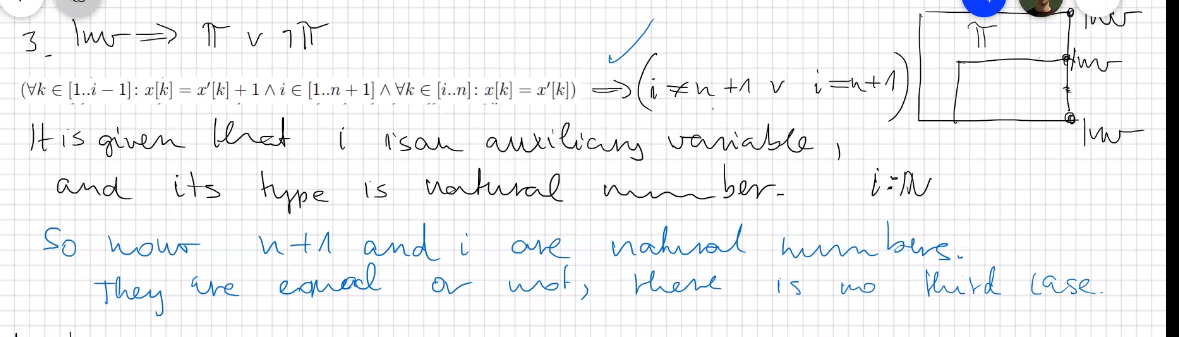 3. Inv ⇒ π ∨ ¬π
(∀k ∈ [1..i − 1]: x[k] = x′[k] + 1 ∧ i ∈ [1..n + 1] ∧ ∀k ∈ [i..n]: x[k] = x′[k]) ⇒ (i ≠ n+1 ∨ i=n+1)
π
Inv
Inv
Inv
It is given that i is an auxiliary variable,
and its type is natural number. i:ℕ
So now n+1 and i are natural numbers.
They are equal or not, there is no third case.